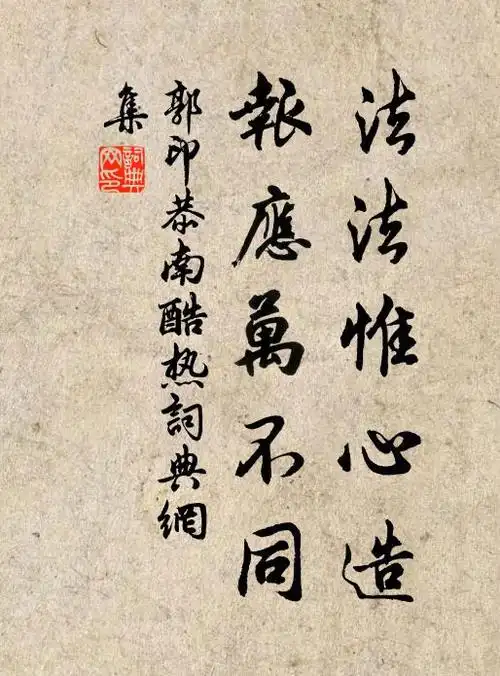 法法惟心造
報應萬不同
郭印恭南酷热詞典網
集
詞典
网印